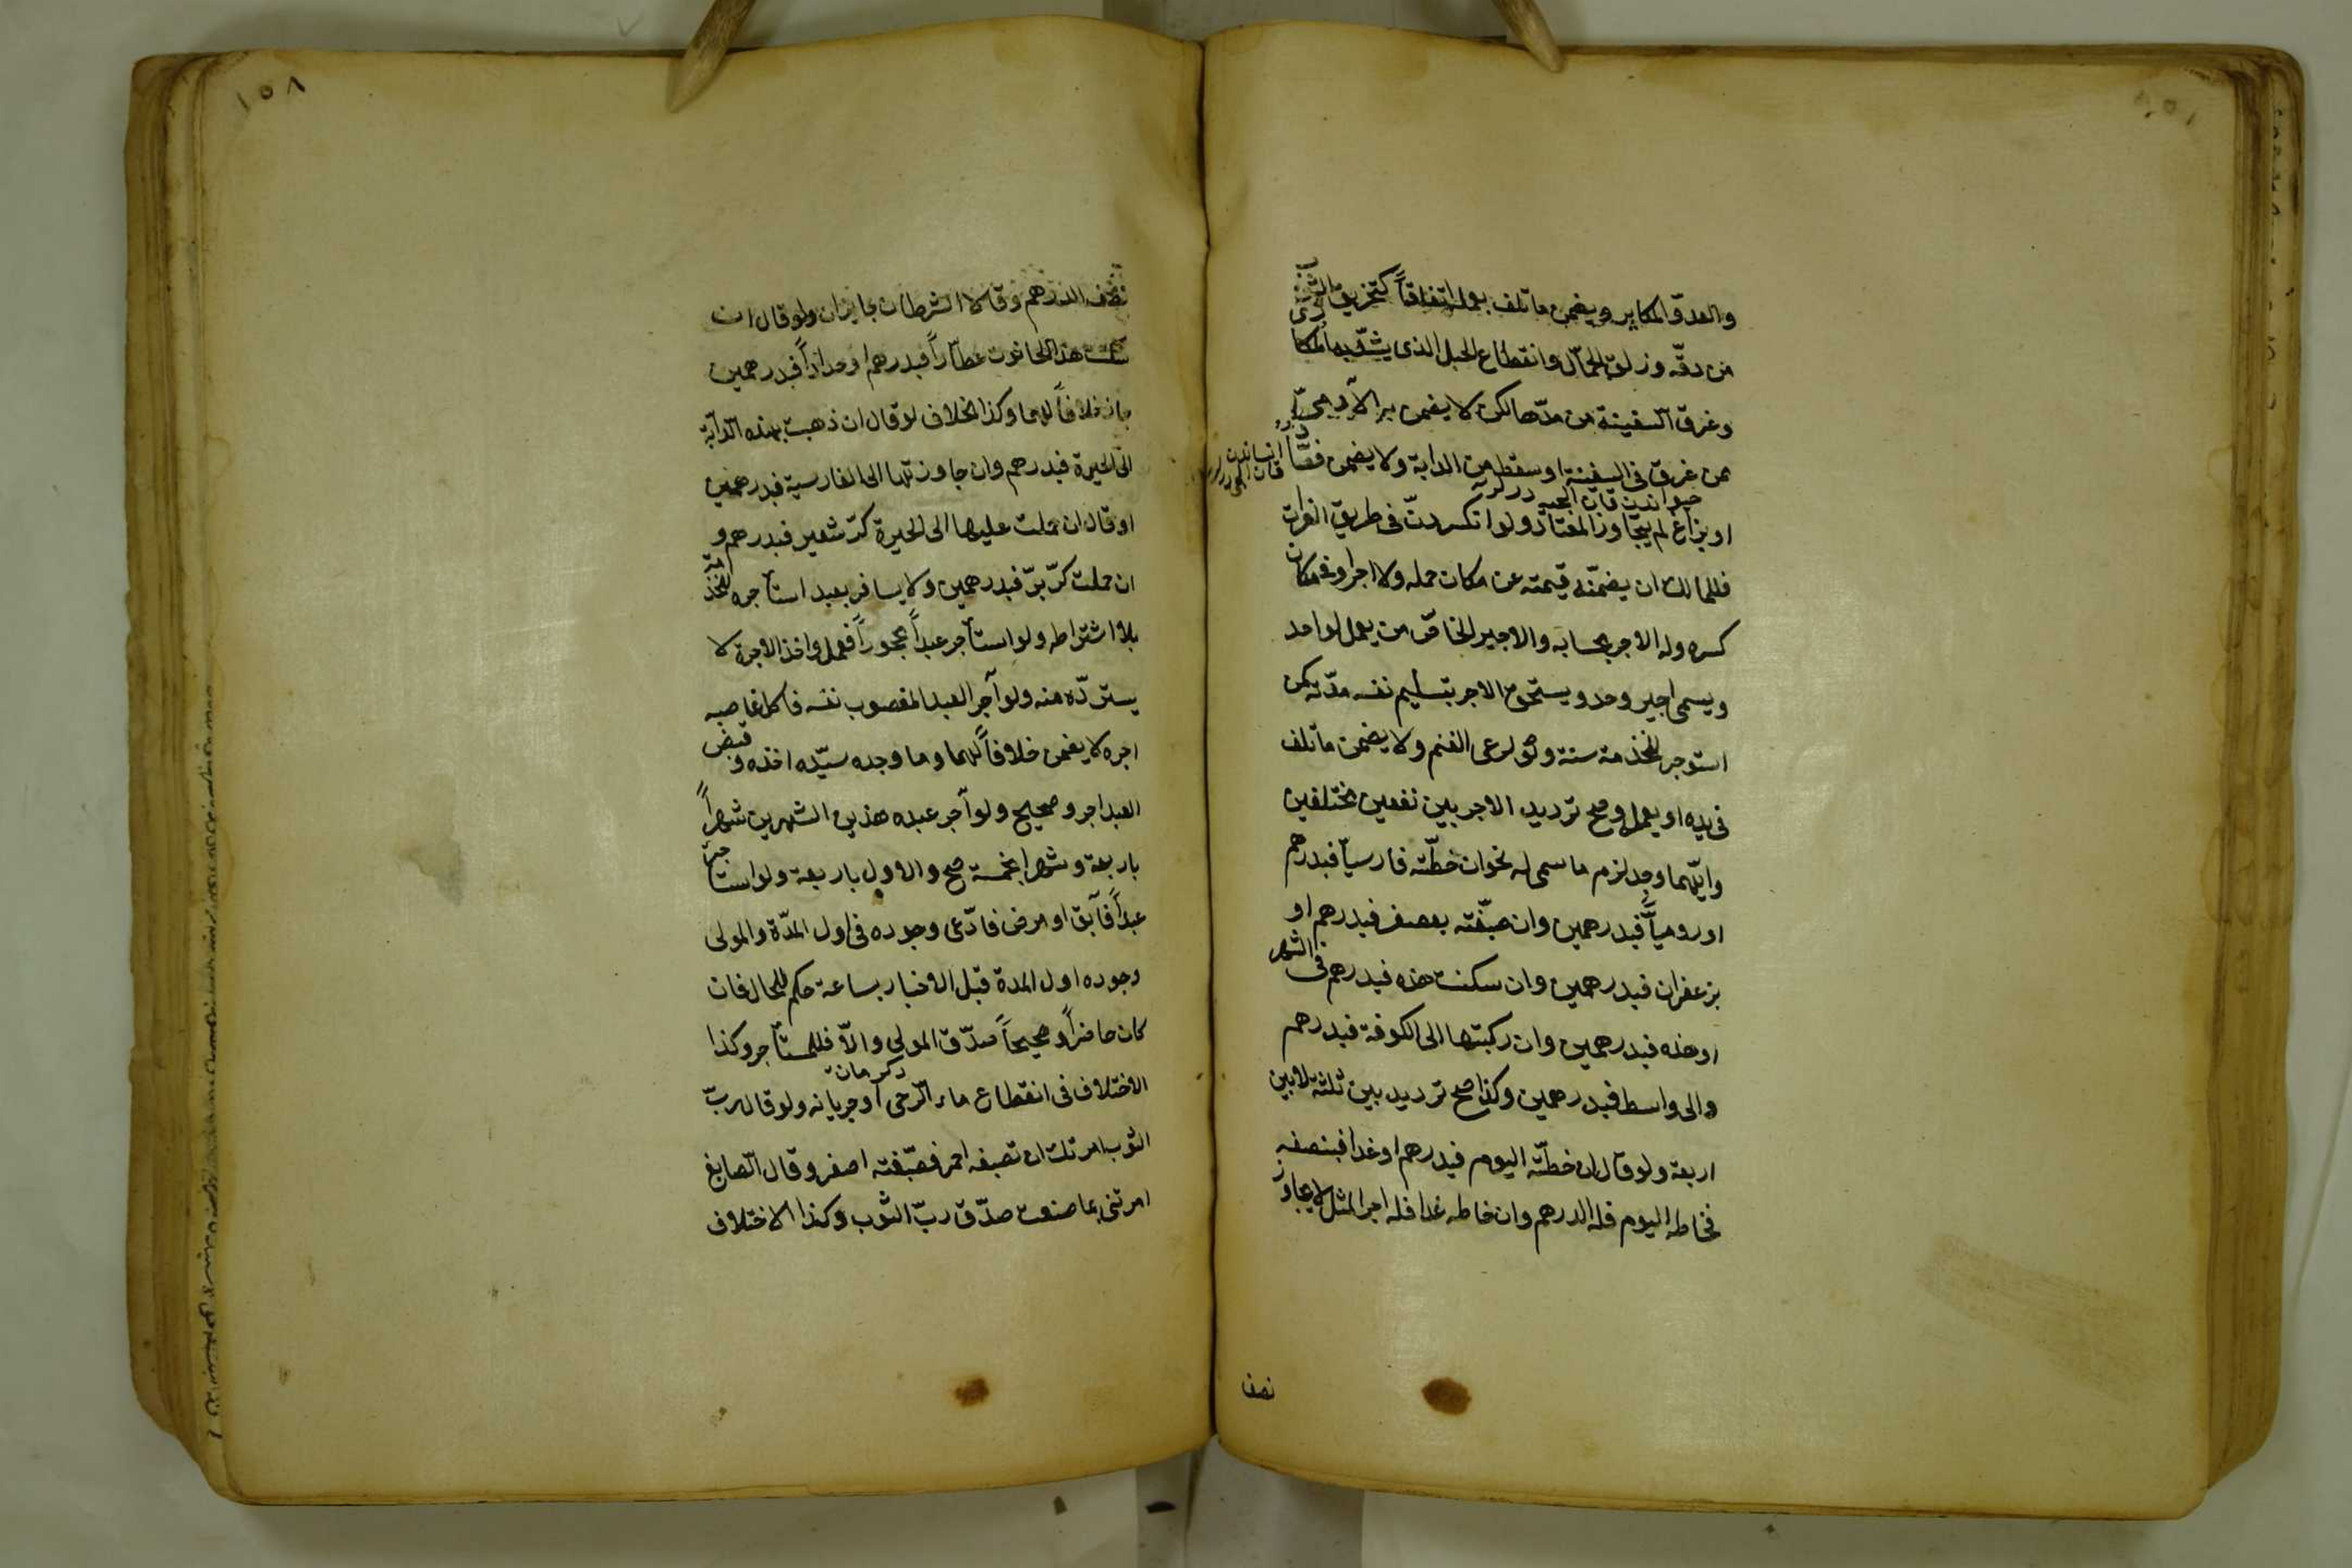 والعدوّ المكابر ويضمن ما تلف بعمله اتفاقاً كتخريق الثوب
من دقّه وزلق الحمّال وانقطاع الحبل الذى يشدّ به المكارى
وغرق السفينة من مدّها لكن لا يضمن به الآدمىّ
ممن غرق فى السفينة او سقط من الدابة ولا يضمن فصّاد
او بزاغ لم يتجاوز المعتاد ولو انكسر دنّ فى طريق الفرات
فللمالك ان يضمّنه قيمته عن مكان حمله ولا اجر او فى مكان
كسره وله الاجر بحسابه والاجير الخاصّ من يعمل لواحد
ويسمى اجير وحد ويستحقّ الاجر بتسليم نفسه مدّته كمن
استوجر للخدمة سنة او لرعى الغنم ولا يضمن ما تلف
فى يده او بعمله وصح ترديد الاجر بين نفعين مختلفين
وايّهما وجد لزم ما سمى له نحو ان خطّته فارسيّاً فبدرهم
او روميّاً فبدرهمين وان صبّغته بعصفر فبدرهم او
بزعفران فبدرهمين وان سكنت هذه فبدرهم فى الشهر
او هذه فبدرهمين وان ركبتها الى الكوفة فبدرهم
والى واسط فبدرهمين وكذا صح ترديد بين ثلثة لا بين
اربعة ولو قال ان خطّته اليوم فبدرهم او غدا فبنصفه
فخاطه اليوم فله الدرهم وان خاطه غدا فله اجر المثل لا يجاوز
نصف
١٥٨
نصف الدرهم وقالا الشرطان جايزان ولو قال ان
سكنت هذا الحانوت عطّاراً فبدرهم او حداداً فبدرهمين
جاز خلافاً لهما وكذا الخلاف لو قال ان ذهبت بهذه الدّابّة
الى الحيرة فبدرهم وان جاوزتها الى القادسية فبدرهمين
او قال ان حملت عليها الى الحيرة كرّ شعير فبدرهم و
ان حملت كرّ برّ فبدرهمين ولا يسافر بعبد استأجره للخدمة
بلا اشتراطه ولو استأجر عبداً محجوراً فعمل واخذ الاجرة لا
يستردّه منه ولو آجر العبد المغصوب نفسه فاكل غاصبه
اجره لا يضمن خلافاً لهما وما وجده سيّده اخذه وقبض
العبد اجره صحيح ولو آجر عبده هذين الشهرين شهراً
باربعة وشهرا بخمسة صح والاول باربعة ولو استأجر
عبداً فآبق او مرض فادّعى وجوده فى اول المدّة والمولى
وجوده اول المدة قبل الاخبار بساعة حكم للحال فان
كان حاضراً او صحيحاً صدّق المولى والاّ فللمستأجر وكذا
الاختلاف فى انقطاع ماء الرحى او جريانه ولو قال ربّ
الثوب امرتك ان تصبغه احمر فصبّغته اصفر وقال الصابغ
امرتنى بما صنعت صدّق ربّ الثوب وكذا الاختلاف